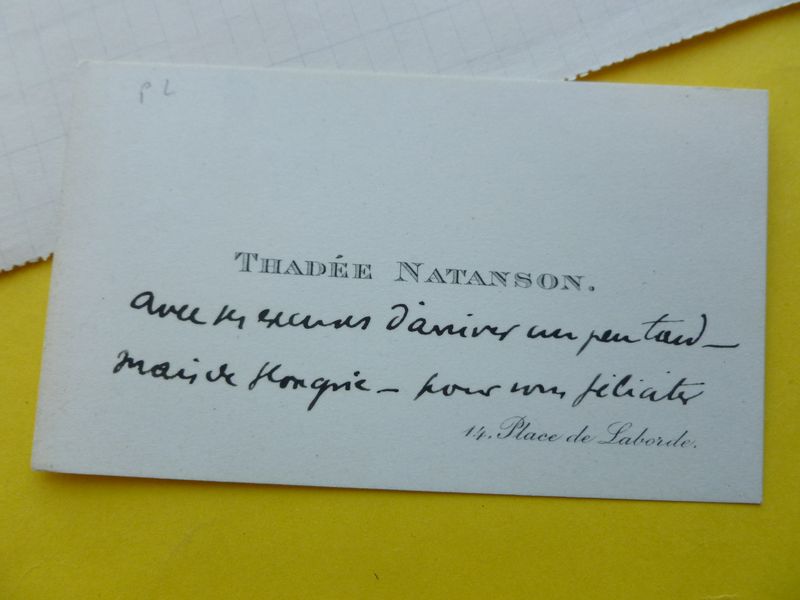 P L
THADÉE NATANSON.
avec ses excuses d'arriver un peu tard –
mais de Hongrie – pour vous féliciter
14. Place de Laborde.